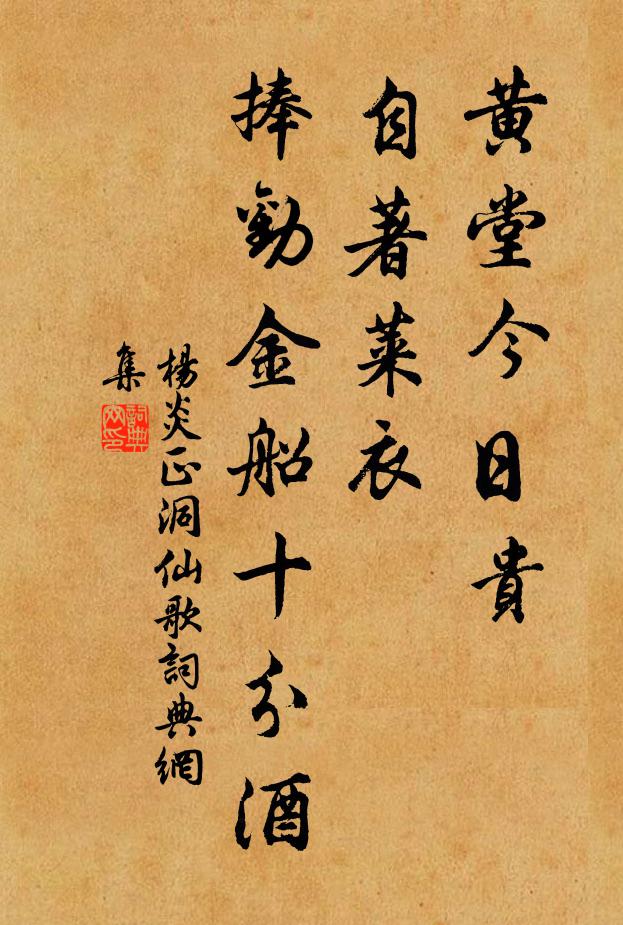 黄堂今日貴
自著萊衣
捧勸金船十分酒
楊炎正洞仙歌詞典網
集
詞典
网印